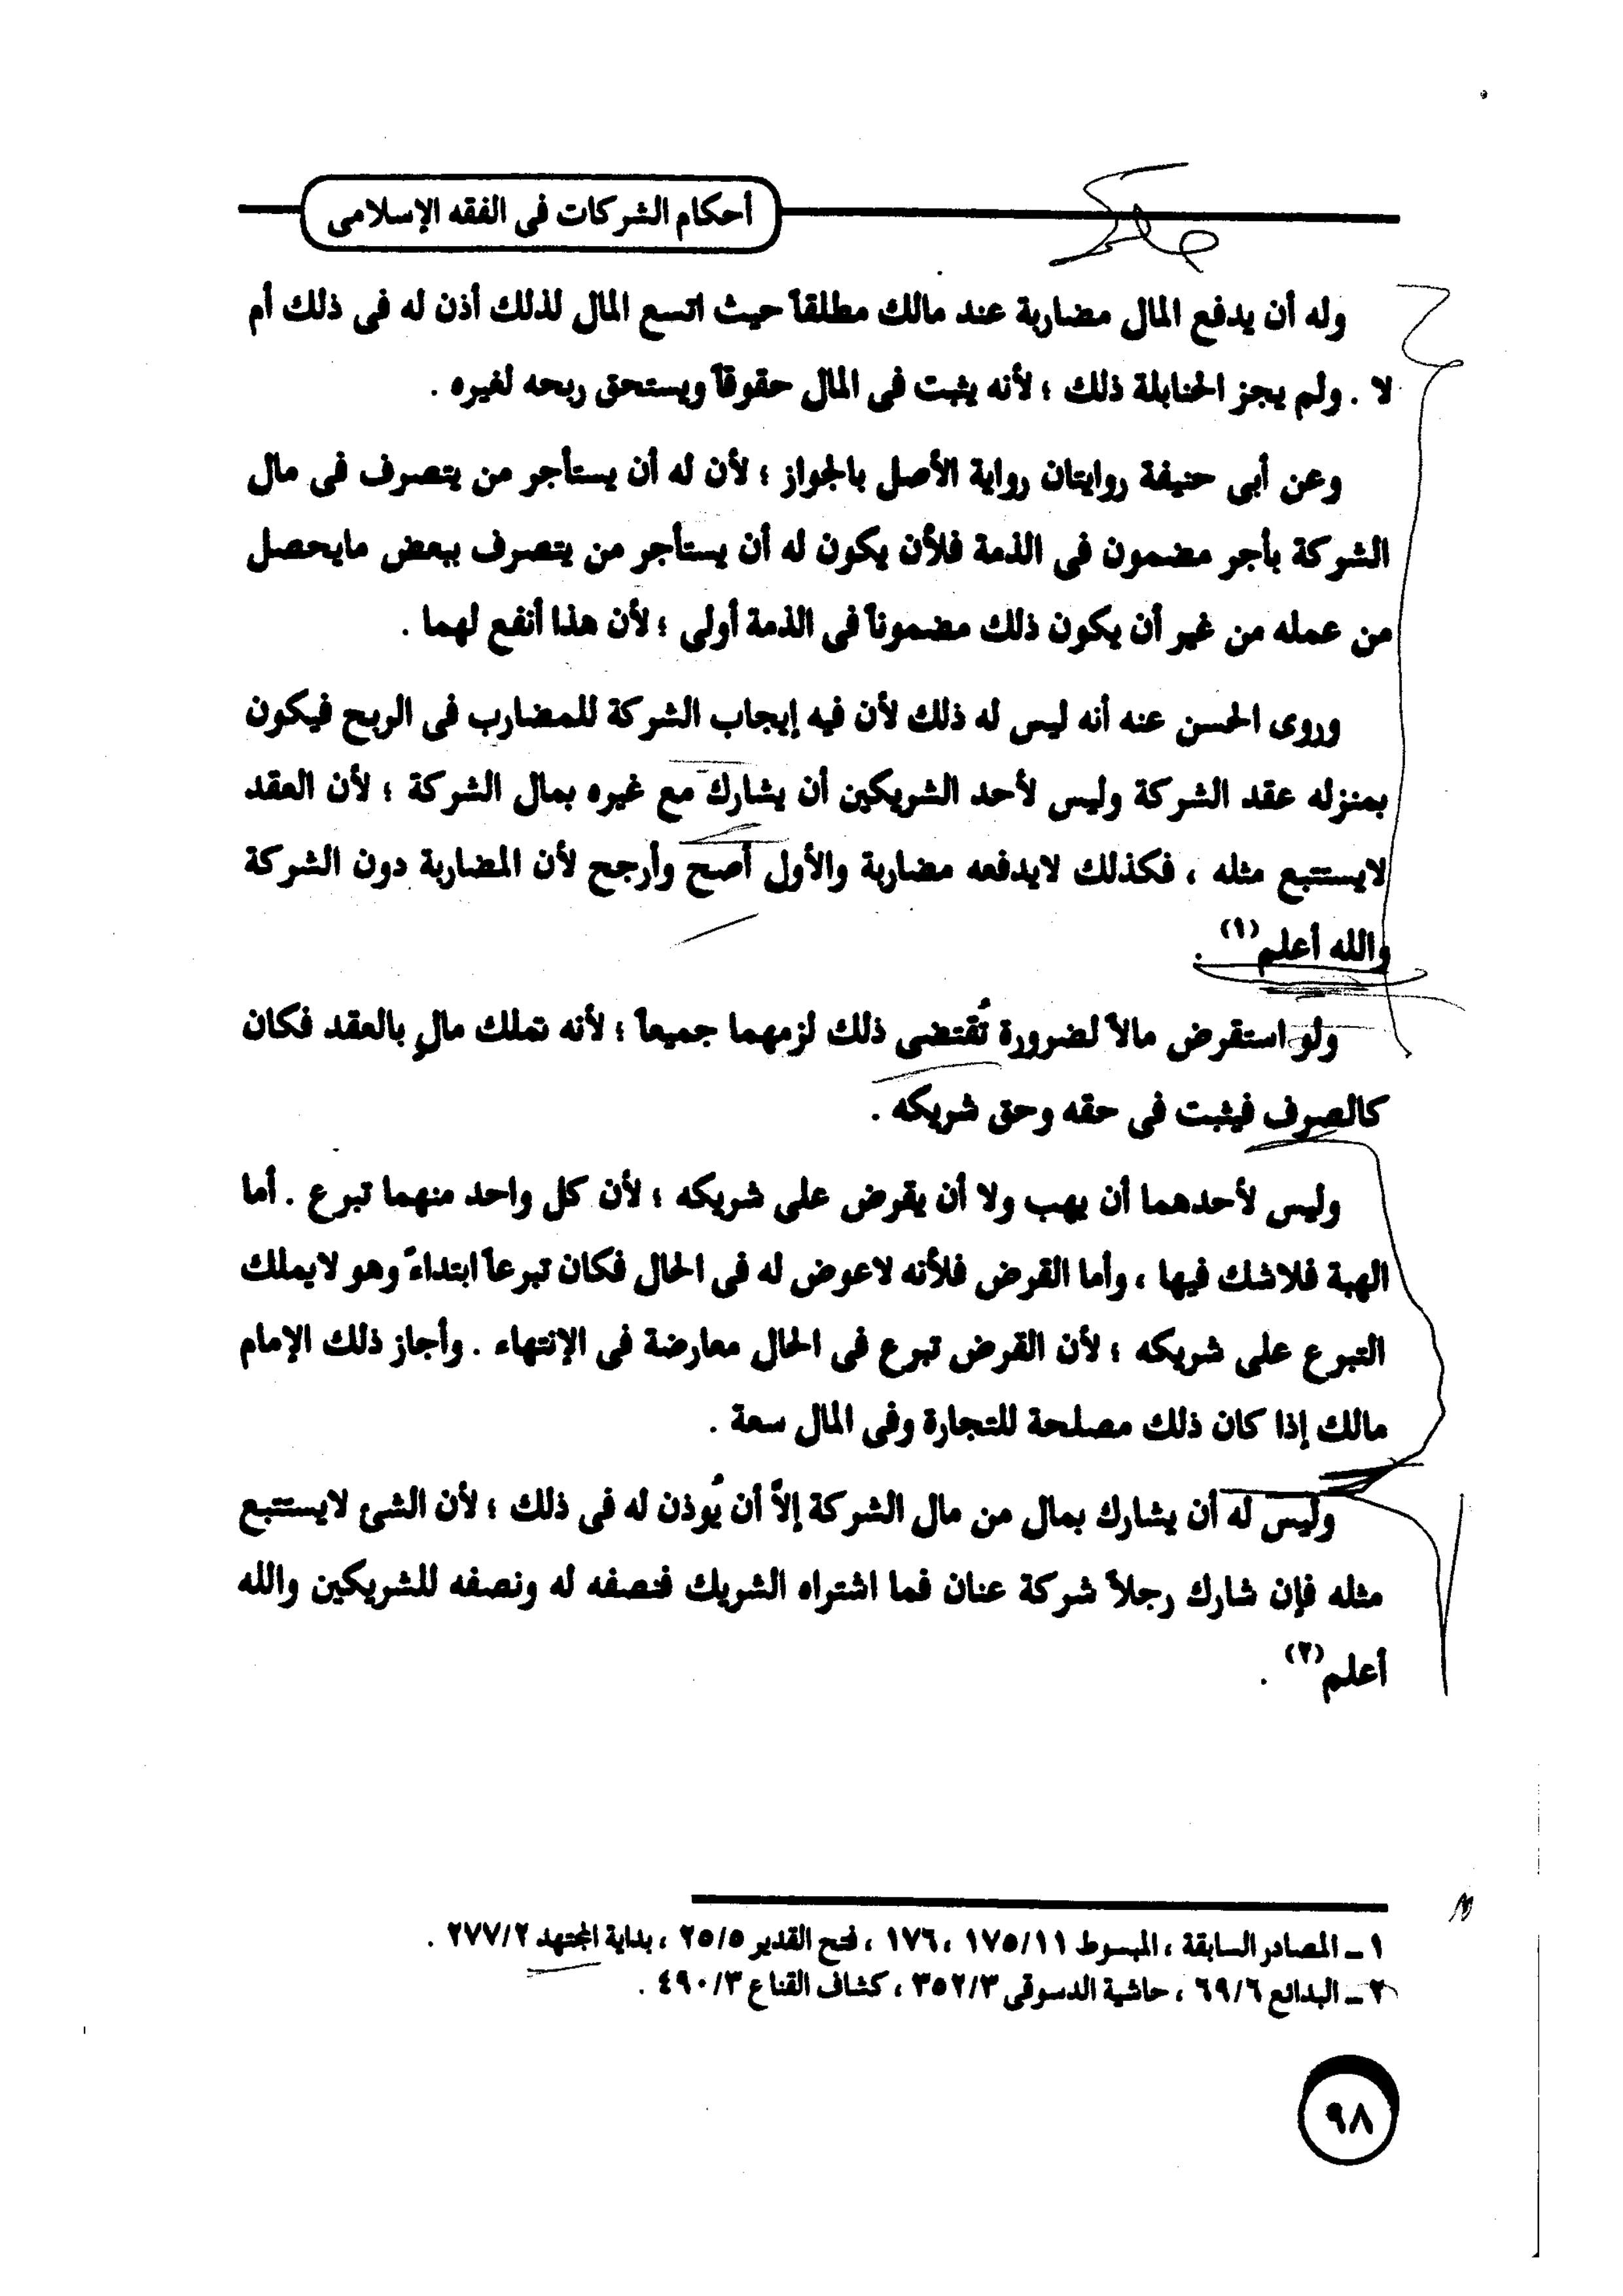 أحكام الشركات فى الفقه الإسلامى
وله أن يدفع المال مضاربة عند مالك مطلقاً حيث اتسع المال لذلك أذن له فى ذلك أم
لا . ولم يجز الحنابلة ذلك ؛ لأنه يثبت فى المال حقوقاً ويستحق ربحه لغيره .
وعن أبى حنيفة روايتان رواية الأصل بالجواز ؛ لأن له أن يستأجر من يتصرف فى مال
الشركة بأجر مضمون فى الذمة فلأن يكون له أن يستأجر من يتصرف ببعض مايحصل
من عمله من غير أن يكون ذلك مضموناً فى الذمة أولى ؛ لأن هذا أنفع لهما .
وروى الحسن عنه أنه ليس له ذلك لأن فيه إيجاب الشركة للمضارب فى الربح فيكون
بمنزله عقد الشركة وليس لأحد الشريكين أن يشارك مع غيره بمال الشركة ؛ لأن العقد
لايستتبع مثله ، فكذلك لايدفعه مضاربة والأول أصح وأرجح لأن المضاربة دون الشركة
والله أعلم(١) .
ولو استقرض مالاً لضرورة تُقتضى ذلك لزمهما جميعاً ؛ لأنه تملك مالٍ بالعقد فكان
كالصرف فيثبت فى حقه وحق شريكه .
وليس لأحدهما أن يهب ولا أن يقرض على شريكه ؛ لأن كل واحد منهما تبرع . أما
الهبة فلاشك فيها ، وأما القرض فلأنه لاعوض له فى الحال فكان تبرعاً ابتداءً وهو لايملك
التبرع على شريكه ؛ لأن القرض تبرع فى الحال معارضة فى الإنتهاء . وأجاز ذلك الإمام
مالك إذا كان ذلك مصلحة للتجارة وفى المال سعة .
وليس له أن يشارك بمال من مال الشركة إلاّ أن يُوذن له فى ذلك ؛ لأن الشئ لايستتبع
مثله فإن شارك رجلاً شركة عنان فما اشتراه الشريك فنصفه له ونصفه للشريكين والله
أعلم(٢) .
١ ـ المصادر السابقة ، المبسوط ١٧٥/١١ ، ١٧٦ ، فتح القدير ٢٥/٥ ، بداية المجتهد ٢٧٧/٢ .
٢ ـ البدائع ٦٩/٦ ، حاشية الدسوقى ٣٥٢/٣ ، كشاف القناع ٤٩٠/٣ .
٩٨